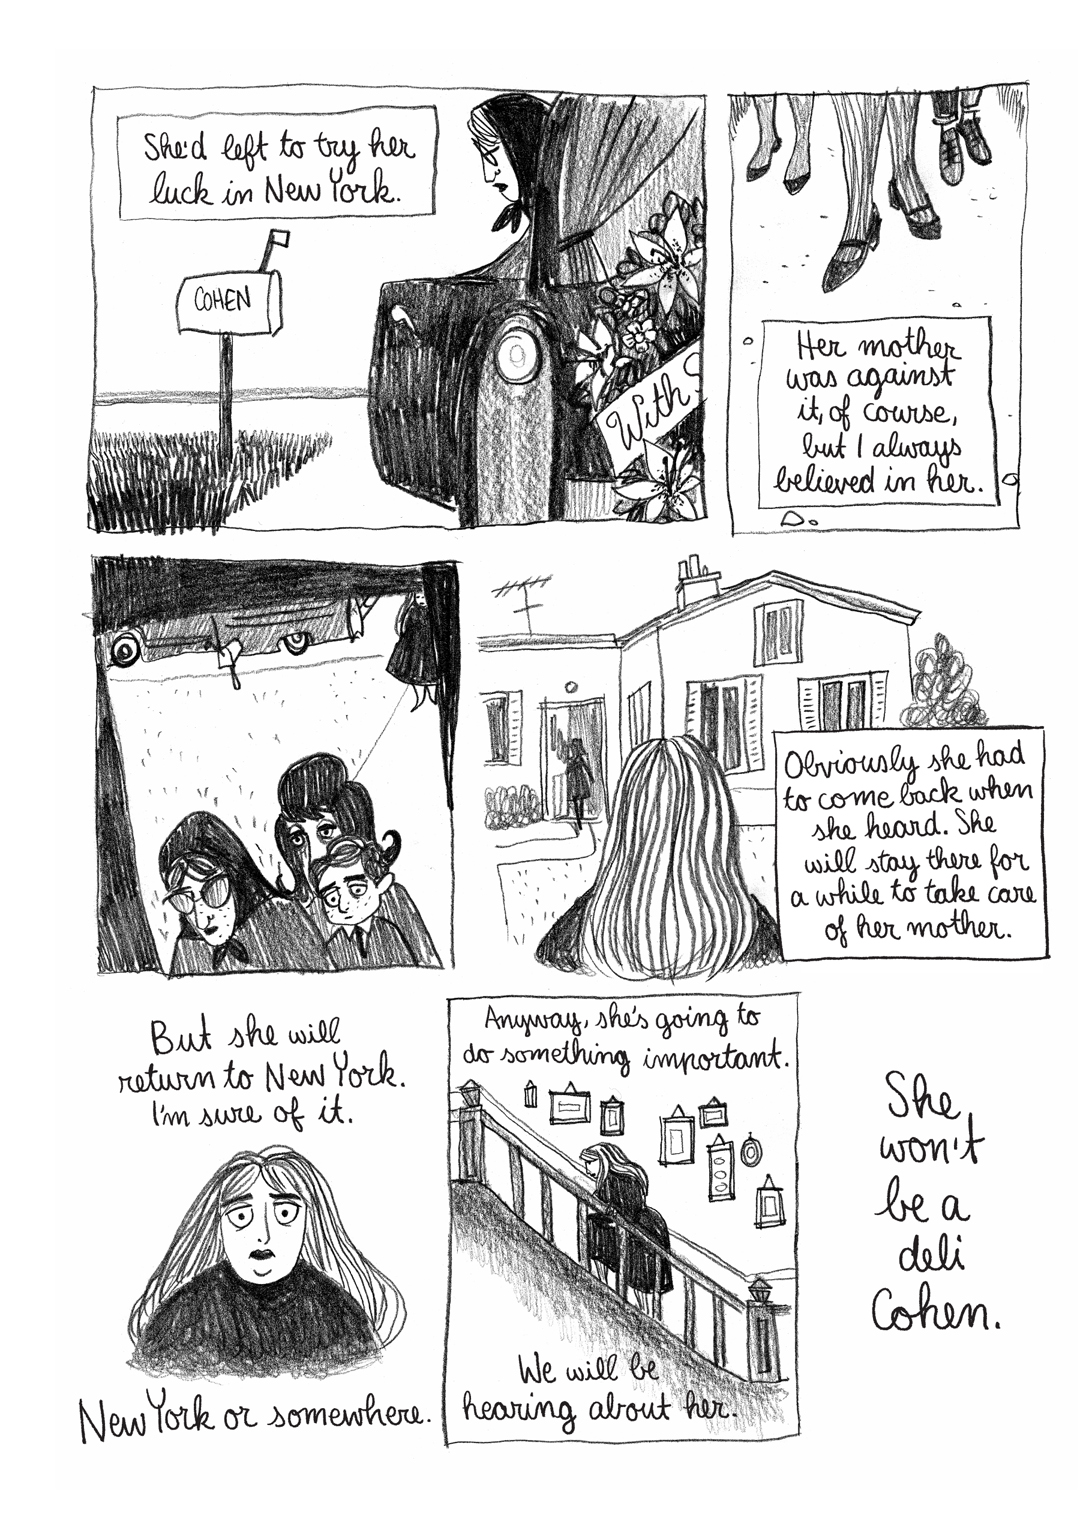 She'd left to try her
luck in New York.
COHEN
With
Her mother
was against
it, of course,
but I always
believed in her.
Obviously she had
to come back when
she heard. She
will stay there for
a while to take care
of her mother.
But she will
return to New York.
I'm sure of it.
New York or somewhere.
Anyway, she's going to
do something important.
We will be
hearing about her.
She
won't
be a
deli
Cohen.